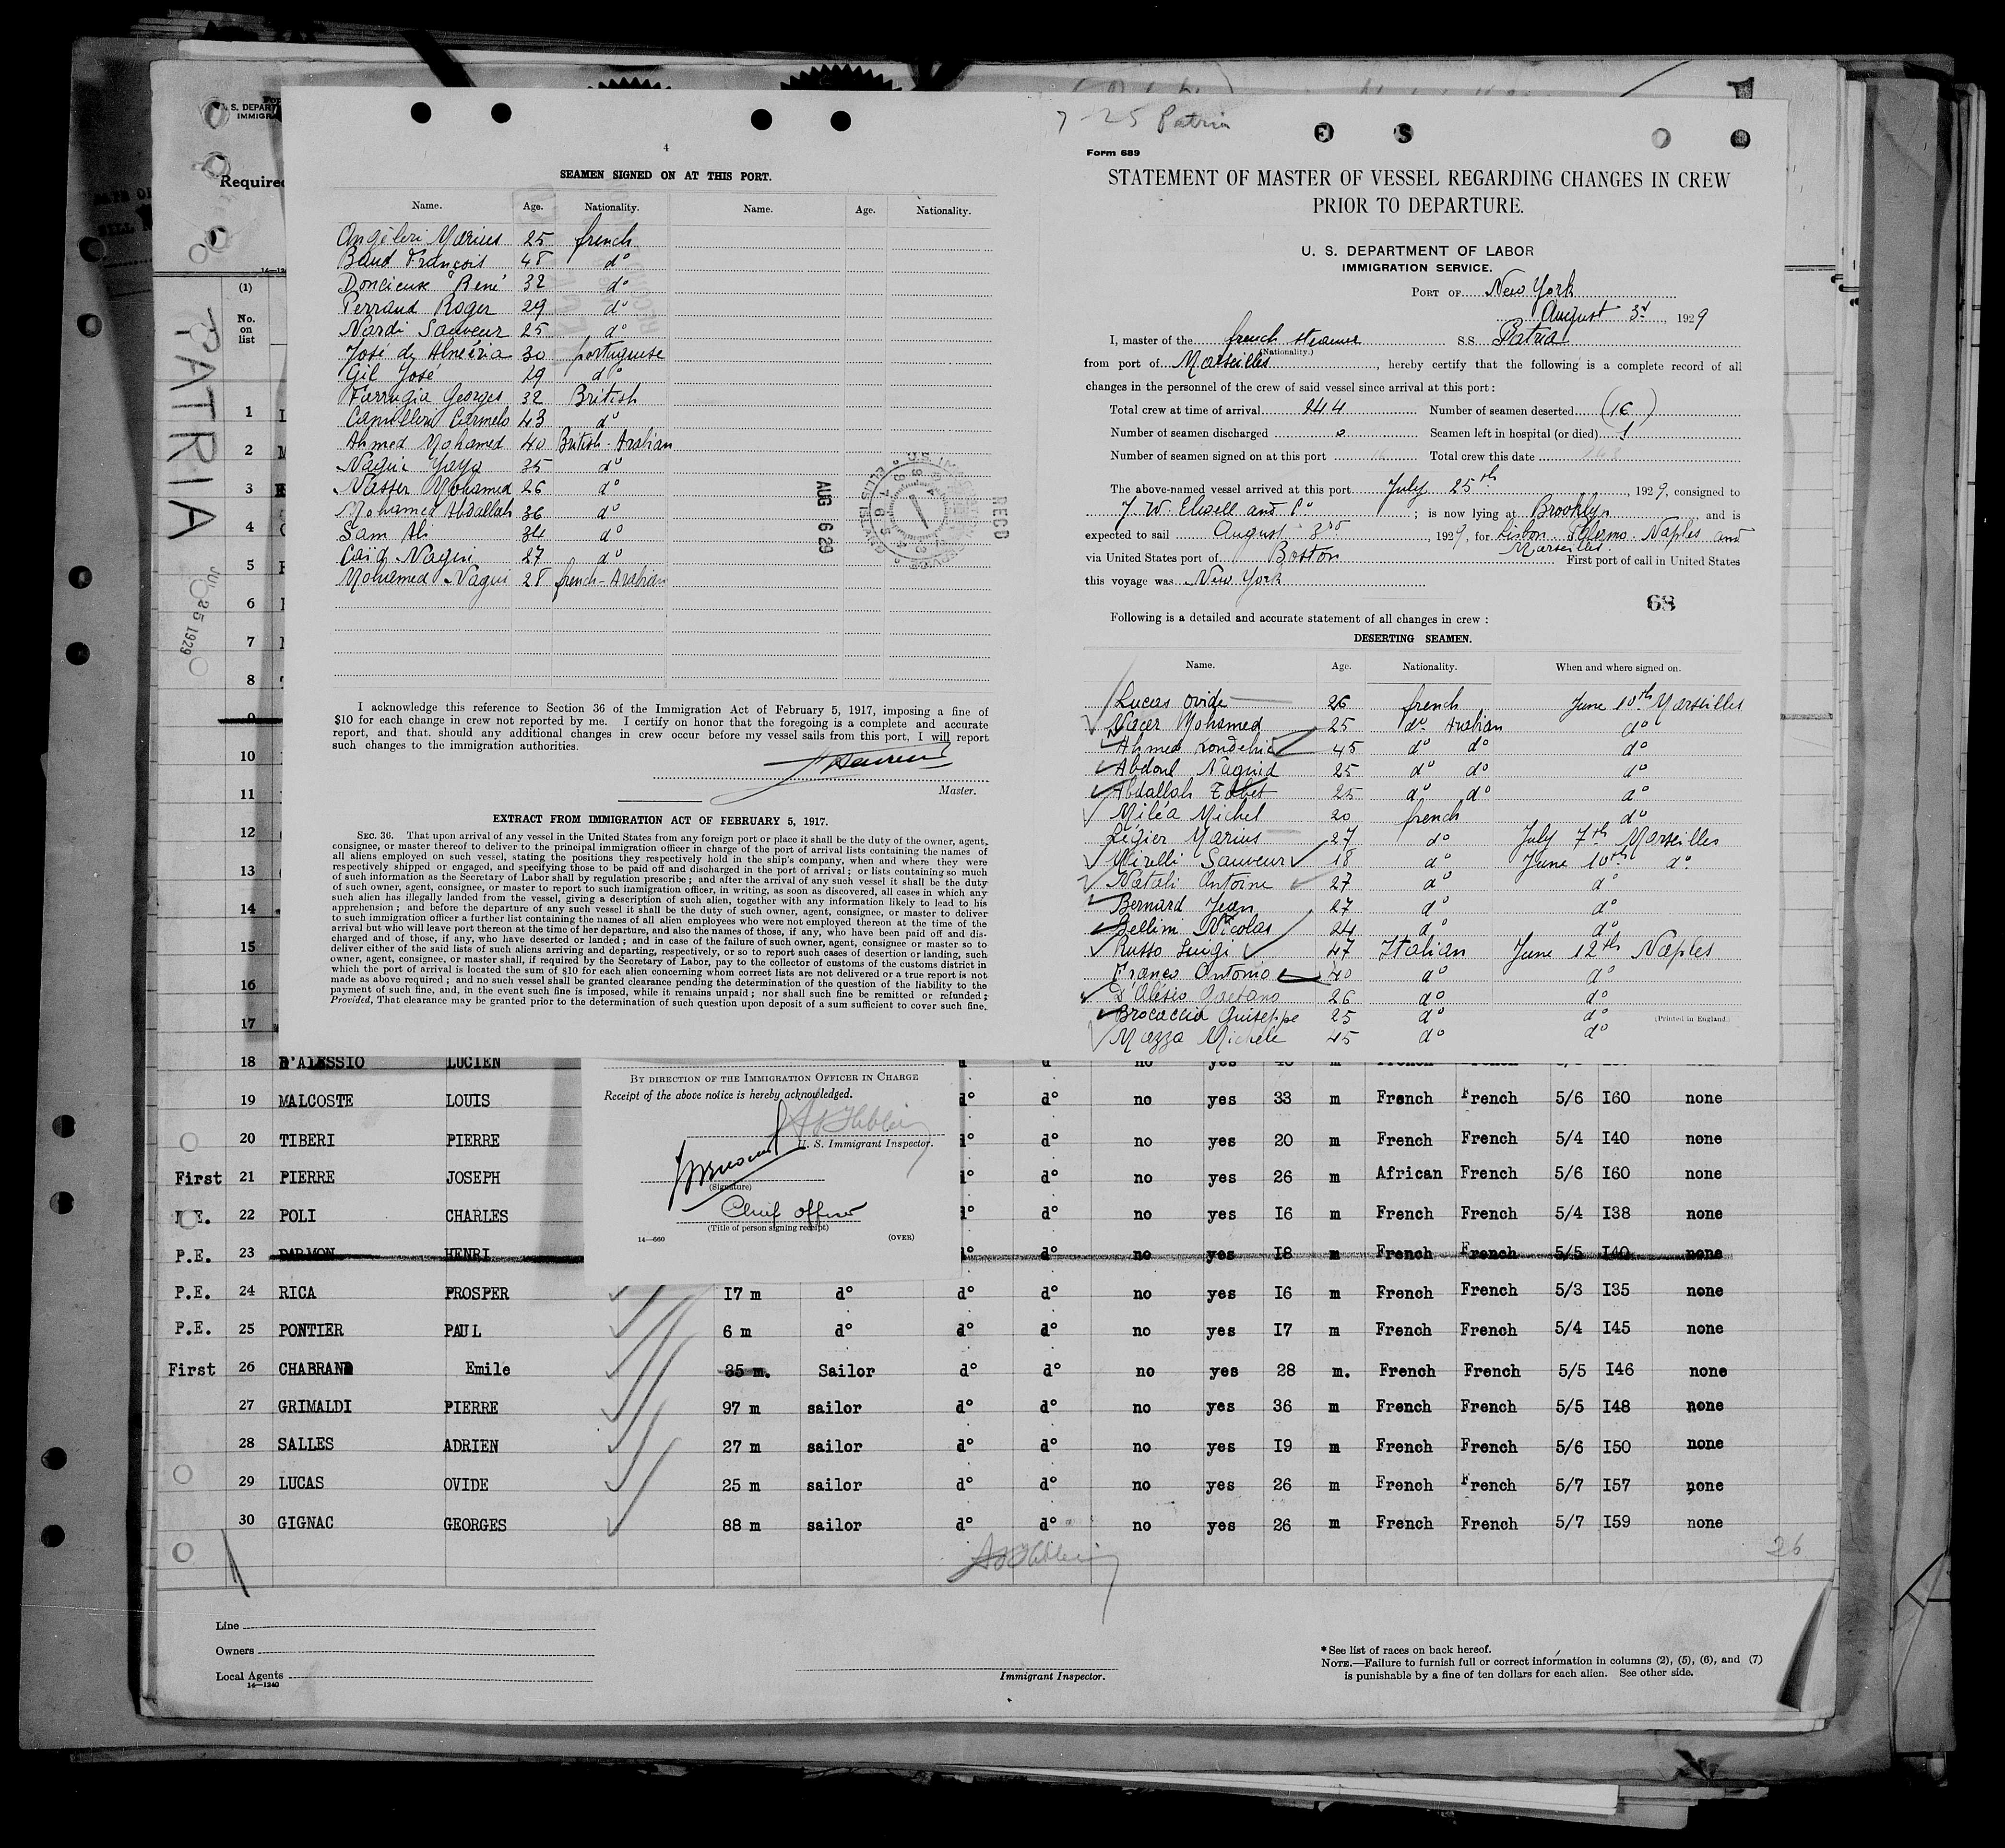 7-25 Patria
4
SEAMEN SIGNED ON AT THIS PORT.
Name. Age. Nationality. Name. Age. Nationality.
Angéleri Marius 25 french
Baud François 48 d°
Doncieux René 32 d°
Perraud Roger 29 d°
Nardi Sauveur 25 d°
José de Almeiria 30 portuguese
Gil José 29 d°
Farrugia Georges 32 British
Camilleri Carmelo 43 d°
Ahmed Mohamed 40 British-Arabian
Nagui Yaya 35 d°
Nasser Mohamed 26 d°
Mohamed Abdallah 36 d°
Sam Ali 34 d°
Caïd Nagui 27 d°
Mohamed Nagui 28 french-Arabian
AUG 6 29
REC'D
I acknowledge this reference to Section 36 of the Immigration Act of February 5, 1917, imposing a fine of
$10 for each change in crew not reported by me. I certify on honor that the foregoing is a complete and accurate
report, and that should any additional changes in crew occur before my vessel sails from this port, I will report
such changes to the immigration authorities.
Master.
EXTRACT FROM IMMIGRATION ACT OF FEBRUARY 5, 1917.
SEC. 36. That upon arrival of any vessel in the United States from any foreign port or place it shall be the duty of the owner, agent,
consignee, or master thereof to deliver to the principal immigration officer in charge of the port of arrival lists containing the names of
all aliens employed on such vessel, stating the positions they respectively hold in the ship's company, when and where they were
respectively shipped or engaged, and specifying those to be paid off and discharged in the port of arrival; or lists containing so much
of such information as the Secretary of Labor shall by regulation prescribe; and after the arrival of any such vessel it shall be the duty
of such owner, agent, consignee, or master to report to such immigration officer, in writing, as soon as discovered, all cases in which any
such alien has illegally landed from the vessel, giving a description of such alien, together with any information likely to lead to his
apprehension; and before the departure of any such vessel it shall be the duty of such owner, agent, consignee, or master to deliver
to such immigration officer a further list containing the names of all alien employees who were not employed thereon at the time of the
arrival but who will leave port thereon at the time of her departure, and also the names of those, if any, who have been paid off and dis-
charged and of those, if any, who have deserted or landed; and in case of the failure of such owner, agent, consignee or master so to
deliver either of the said lists of such aliens arriving and departing, respectively, or so to report such cases of desertion or landing, such
owner, agent, consignee, or master, shall, if required by the Secretary of Labor, pay to the collector of customs of the customs district in
which the port of arrival is located the sum of $10 for each alien concerning whom correct lists are not delivered or a true report is not
made as above required; and no such vessel shall be granted clearance pending the determination of the question of the liability to the
payment of such fine, and, in the event such fine is imposed, while it remains unpaid; nor shall such fine be remitted or refunded;
Provided, That clearance may be granted prior to the determination of such question upon deposit of a sum sufficient to cover such fine.
Form 689
STATEMENT OF MASTER OF VESSEL REGARDING CHANGES IN CREW
PRIOR TO DEPARTURE.
U. S. DEPARTMENT OF LABOR
IMMIGRATION SERVICE.
PORT OF New York
August 3d, 1929
I, master of the french steamer S.S. Patria
(Nationality.)
from port of Marseilles, hereby certify that the following is a complete record of all
changes in the personnel of the crew of said vessel since arrival at this port:
Total crew at time of arrival 244 Number of seamen deserted (16)
Number of seamen discharged 0 Seamen left in hospital (or died) 1
Number of seamen signed on at this port 16 Total crew this date
The above-named vessel arrived at this port July 25th, 1929, consigned to
J. W. Elwell and C°; is now lying at Brooklyn and is
expected to sail August 3rd, 1929, for Lisbon Palermo Naples and
Marseilles
via United States port of Boston First port of call in United States
this voyage was New York
68
Following is a detailed and accurate statement of all changes in crew:
DESERTING SEAMEN.
Name. Age. Nationality. When and where signed on.
Lucas Ovide 26 french June 10th Marseilles
Nacer Mohamed 25 d° Arabian d°
Ahmed Londehic 45 d° d° d°
Abdoul Naguid 25 d° d° d°
Abdallah Zabet 25 d° d° d°
Miléa Michel 20 french d°
Légier Marius 27 d° July 7th Marseilles
Mirelli Sauveur 18 d° June 10th d°
Natali Antoine 27 d° d°
Bernard Jean 27 d° d°
Bellini Nicolas 24 d° d°
Russo Luigi 47 Italian June 12th Naples
Franco Antonio 40 d° d°
D'Alésio Gaetano 26 d° d°
Brocaccia Guiseppe 25 d° d°
Mazza Michele 45 d° d°
(Printed in England.)
U. S. DEPART
IMMIGRA
Required
(1)
No.
on
list
PATRIA
JUL 25 1929
1
2
3
4
5
6
7
8
9
10
11
12
13
14
15
16
17
18 D'ALESSIO LUCIEN
BY DIRECTION OF THE IMMIGRATION OFFICER IN CHARGE
Receipt of the above notice is hereby acknowledged.
U. S. Immigrant Inspector.
(Signature)
Chief officer
(Title of person signing receipt)
14—660 (OVER)
19 MALCOSTE LOUIS d° d° no yes 33 m French French 5/6 I60 none
20 TIBERI PIERRE d° d° no yes 20 m French French 5/4 I40 none
First 21 PIERRE JOSEPH d° d° no yes 26 m African French 5/6 I60 none
P.E. 22 POLI CHARLES d° d° no yes I6 m French French 5/4 I38 none
P.E. 23 DARMON HENRI d° d° no yes I8 m French French 5/5 I40 none
P.E. 24 RICA PROSPER I7 m d° d° d° no yes I6 m French French 5/3 I35 none
P.E. 25 PONTIER PAUL 6 m d° d° d° no yes I7 m French French 5/4 I45 none
First 26 CHABRAND Emile 35 m. Sailor d° d° no yes 28 m. French French 5/5 I46 none
27 GRIMALDI PIERRE 97 m sailor d° d° no yes 36 m French French 5/5 I48 none
28 SALLES ADRIEN 27 m sailor d° d° no yes I9 m French French 5/6 I50 none
29 LUCAS OVIDE 25 m sailor d° d° no yes 26 m French French 5/7 I57 none
30 GIGNAC GEORGES 88 m sailor d° d° no yes 26 m French French 5/7 I59 none
26
Line
Owners
Local Agents
14—1240
Immigrant Inspector.
*See list of races on back hereof.
NOTE.—Failure to furnish full or correct information in columns (2), (5), (6), and (7)
is punishable by a fine of ten dollars for each alien. See other side.